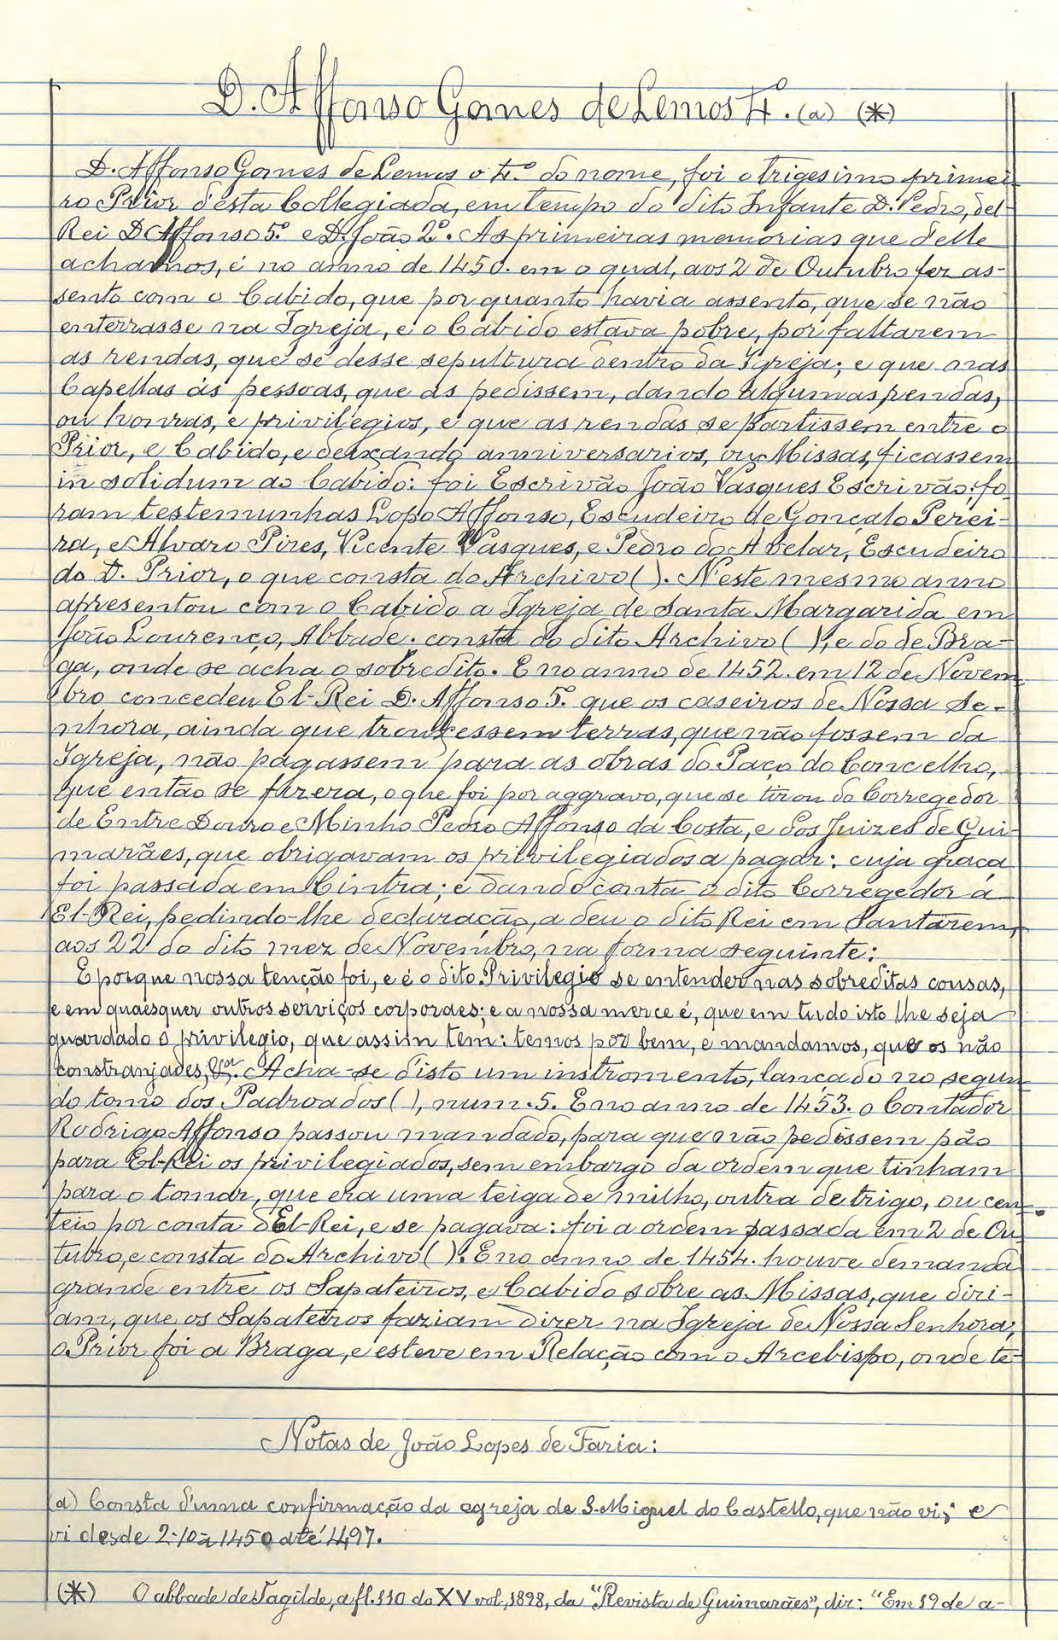 D. Affonso Gomes de Lemos 4º. (a) (*)
D. Affonso Gomes de Lemos o 4º do nome, foi o trigesimo primei-
ro Prior d'esta Collegiada, em tempo do dito Infante D. Pedro, del-
Rei D. Affonso 5º. e D. João 2º. As primeiras memorias que delle
achamos, é no anno de 1450. em o qual, aos 2 de Outubro fez as-
sento com o Cabido, que por quanto havia assento, que se não
enterrasse na Igreja, e o Cabido estava pobre, por faltarem
as rendas, que se desse sepultura dentro da Igreja; e que nas
Capellas ás pessoas, que as pedissem, dando algumas rendas,
ou honras, e privilegios, e que as rendas se partissem entre o
Prior, e Cabido, e deixando anniversarios, ou Missas, ficassem
in solidum ao Cabido: foi Escrivão João Vasques Escrivão; fo-
ram testemunhas Lopo Affonso, Escudeiro de Gonçalo Perei-
ra, e Alvaro Pires, Vicente Vasques, e Pedro do Avelar, Escudeiro
do D. Prior, o que consta do Archivo ( ). N'este mesmo anno
apresentou com o Cabido a Igreja de Santa Margarida em
João Lourenço, Abbade. consta do dito Archivo ( ), e do de Bra-
ga, onde se acha o sobredito. E no anno de 1452. em 12 de Novem
bro concedeu El-Rei D. Affonso 5º. que os caseiros de Nossa Se-
nhora, ainda que trouxessem terras, que não fossem da
Igreja, não pagassem para as obras do Paço do Concelho,
que então se fizera, o que foi por aggravo, que se tirou do Corregedor
de Entre Douro e Minho Pedro Affonso da Costa, e dos Juizes de Gui-
marães, que obrigavam os privilegiados a pagar: cuja graça
foi passada em Cintra; e dando conta o dito Corregedor a
El-Rei, pedindo-lhe declaração, a deu o dito Rei em Santarem,
aos 22 do dito mez de Novembro, na forma seguinte:
E porque nossa tenção foi, e é o dito Privilegio se entender nas sobreditas cousas,
e em quaesquer outros serviços corporaes; e a nossa merce é, que em tudo isto lhe seja
guardado o privilegio, que assim tem: temos por bem, e mandamos, que os não
constranjades, &ca. Acha-se disto um instromento, lançado no segun-
do tomo dos Padroados ( ), num. 5. E no anno de 1453. o Contador
Rodrigo Affonso passou mandado, para que não pedissem pão
para El-Rei os privilegiados, sem embargo da ordem que tinham
para o tomar, que era uma teiga de milho, outra de trigo, ou cen-
teio por conta d'El-Rei, e se pagava: foi a ordem passada em 2 de Ou
tubro, e consta do Archivo ( ). E no anno de 1454. houve demanda
grande entre os Sapateiros, e Cabido sobre as Missas, que diri-
am, que os Sapateiros faziam dizer na Igreja de Nossa Senhora;
o Prior foi a Braga, e esteve em Relação com o Arcebispo, onde te-
Notas de João Lopes de Faria:
(a) Consta d'uma confirmação da egreja de S. Miguel do Castello, que não vi; e
vi desde 2-10-1450 até 1497.
(*) O abbade de Tagilde, a fl. 110 do XV vol., 1898, da "Revista de Guimarães", diz: "Em 19 de a-